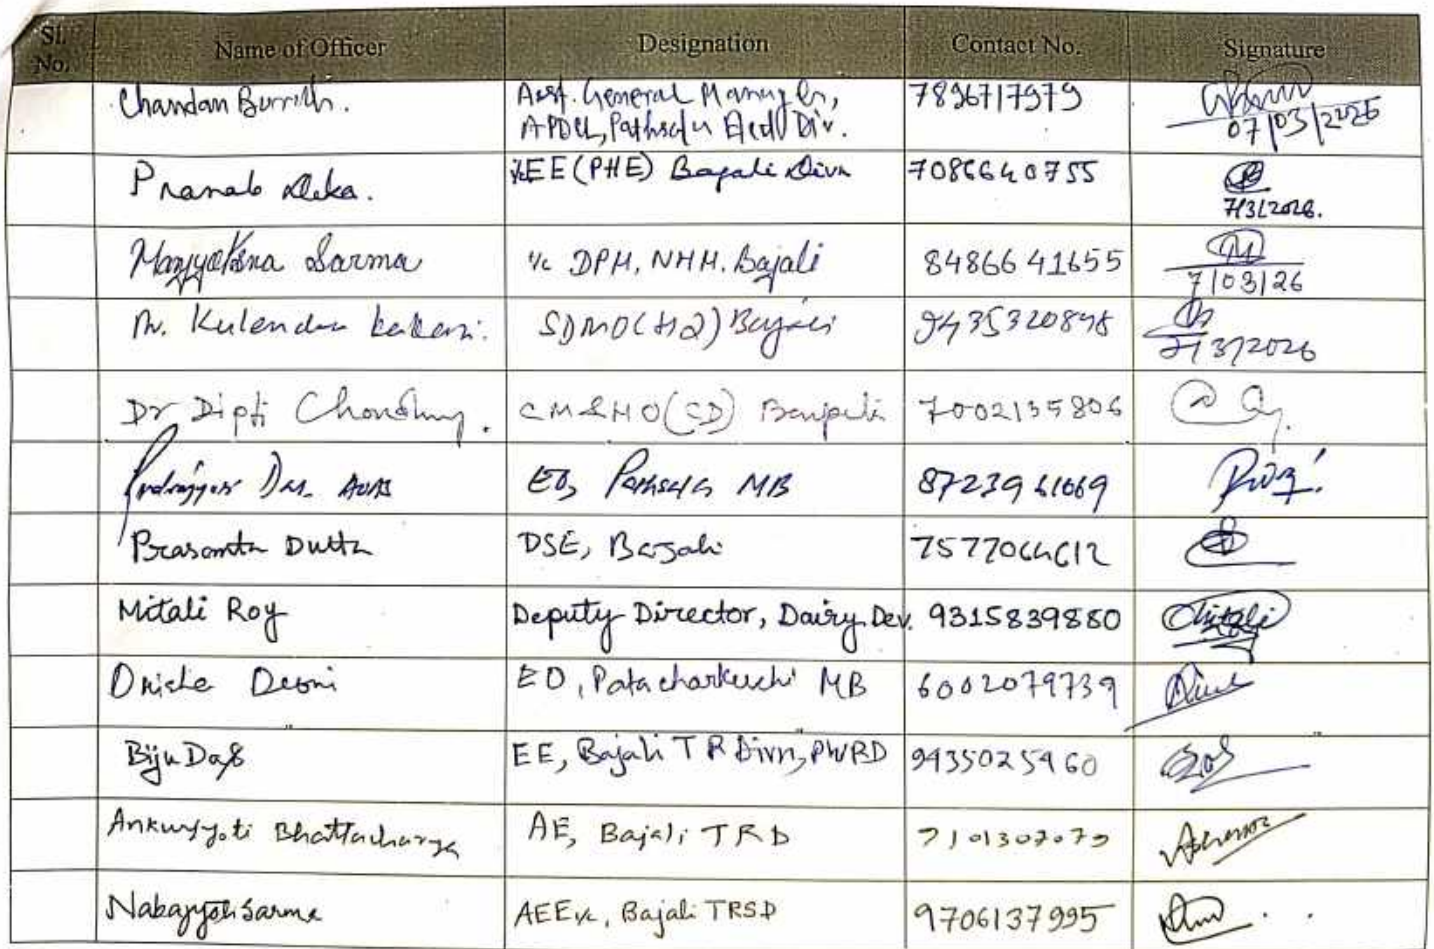 Sl. No. Name of Officer Designation Contact No. Signature
Chandan Asst. General Manager, 7896717979
APDCL, Pathsala Elect Div. 07/03/2026
Pranab Deka. i/c EE (PHE) Bajali Divn 7086640755
7/3/2026.
Manjyotsna Sarma i/c DPM, NHM. Bajali 8486641655
7/03/26
Dr. Kulendra SDMO (HQ) Bajali 9435320898
7/3/2026
Dr Dipti Choudhury. CM&HO (CD) 7002135806
Das. EO, Pathsala MB
Prasanta Dutta DSE, Bajali 7577064612
Mitali Roy Deputy Director, Dairy Dev. 9315839880 Mitali
EO, Patacharkuchi MB 6002079739
Biju Das EE, Bajali T R Divn, PWRD 9435025960
Ankurjyoti Bhattacharya AE, Bajali TRD 7101307079
Nabajyoti Sarma AEE i/c, Bajali TRSD 9706137995